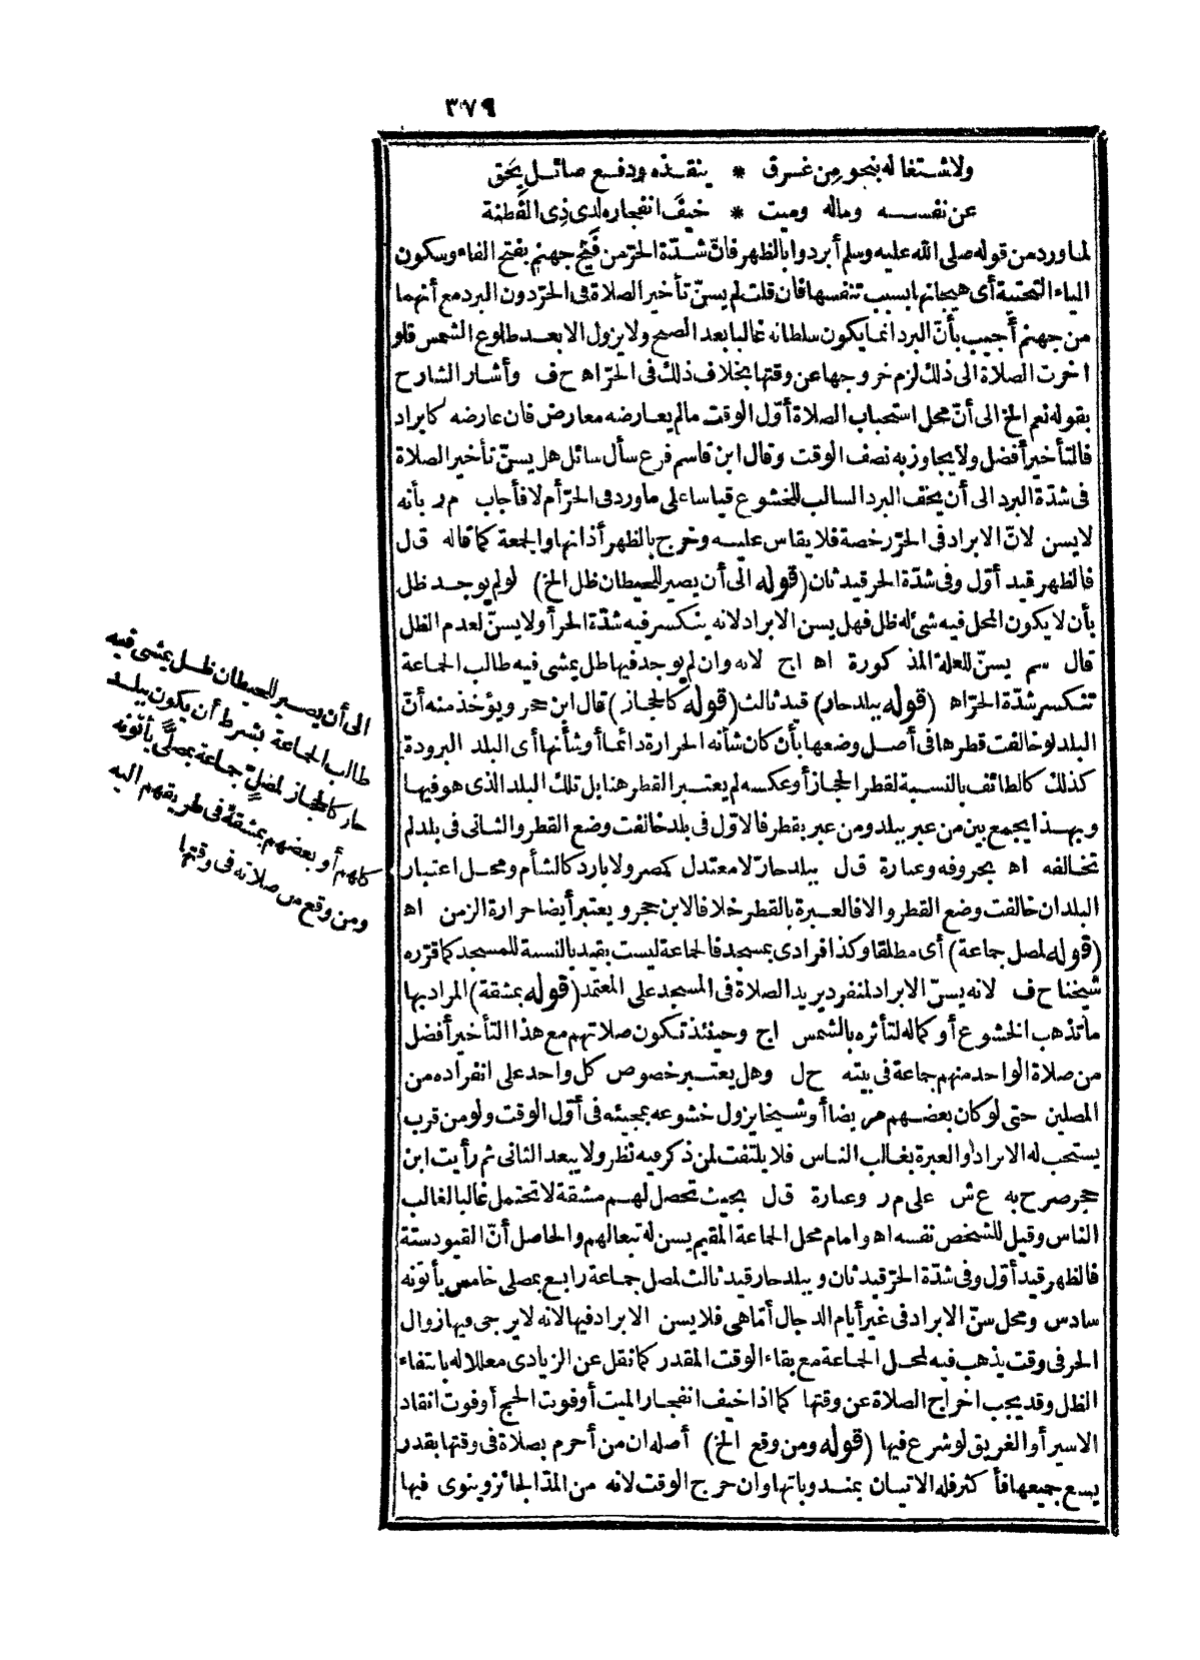 ٣٧٩
ولاشتغاله بنحو من غرق * ينقذه ودفع صائل يحق
عن نفسه وماله وميت * خيف انفجاره لدى ذى الفطنة
لما ورد من قوله صلى الله عليه وسلم أبردوا بالظهر فان شدّة الحرّ من فَيْح جهنم بفتح الفاء وسكون
الياء التحتية أى هيجانها بسبب تنفسها فان قلت لم يسنّ تأخير الصلاة فى الحرّ دون البرد مع أنهما
من جهنم أجيب بأنّ البرد انما يكون سلطانه غالبا بعد الصبح ولا يزول الا بعد طلوع الشمس فلو
اخرت الصلاة الى ذلك لزم خروجها عن وقتها بخلاف ذلك فى الحرّ اه ح ف وأشار الشارح
بقوله نعم الخ الى أنّ محل استحباب الصلاة أوّل الوقت مالم يعارضه معارض فان عارضه كابراد
فالتأخير أفضل ولا يجاوز به نصف الوقت وقال ابن قاسم فرع سأل سائل هل يسنّ تأخير الصلاة
فى شدّة البرد الى أن يخف البرد السالب للخشوع قياسا على ماورد فى الحرّ أم لا فأجاب م ر بأنه
لايسن لانّ الابراد فى الحرّ رخصة فلا يقاس عليه وخرج بالظهر أذانها والجمعة كما قاله ق ل
فالظهر قيد أوّل وفى شدّة الحر قيد ثان (قوله الى أن يصير للحيطان ظل الخ) لو لم يوجد ظل
بأن لا يكون المحل فيه شئ له ظل فهل يسن الابراد لانه ينكسر فيه شدّة الحر أو لا يسنّ لعدم الظل
قال سم يسنّ للعلة المذكورة اه اج لانه وان لم يوجد فيها ظل يمشى فيه طالب الجماعة
تنكسر شدّة الحرّ اه (قوله ببلد حار) قيد ثالث (قوله كالحجاز) قال ابن حجر ويؤخذ منه أنّ
البلد لو خالفت قطرها فى أصل وضعها بأن كان شأنه الحرارة دائما أو شأنها أى البلد البرودة
كذلك كالطائف بالنسبة لقطر الحجاز أو عكسه لم يعتبر القطر هنا بل تلك البلد الذى هو فيها
وبهذا يجمع بين من عبر ببلد ومن عبر بقطر فالاول فى بلد خالفت وضع القطر والثانى فى بلد لم
تخالفه اه بحروفه وعبارة ق ل ببلد حارّ لا معتدل كمصر ولا بارد كالشأم ومحل اعتبار
البلد ان خالفت وضع القطر والا فالعبرة بالقطر خلافا لابن حجر ويعتبر أيضا حرارة الزمن اه
(قوله لمصل جماعة) أى مطلقا وكذا فرادى بمسجد فالجماعة ليست بقيد بالنسبة للمسجد كما قرّره
شيخنا ح ف لانه يسنّ الابراد لمنفرد يريد الصلاة فى المسجد على المعتمد (قوله بمشقة) المراد بها
ما تذهب الخشوع أو كماله لتأثره بالشمس اج وحينئذ تكون صلاتهم مع هذا التأخير أفضل
من صلاة الواحد منهم جماعة فى بيته ح ل وهل يعتبر خصوص كل واحد على انفراده من
المصلين حتى لو كان بعضهم مريضا أو شيخا يزول خشوعه بمجيئه فى أوّل الوقت ولو من قرب
يستحب له الابراد أو العبرة بغالب الناس فلا يلتفت لمن ذكر فيه نظر ولا يبعد الثانى ثم رأيت ابن
حجر صرح به ع ش على م ر وعبارة ق ل بحيث تحصل لهم مشقة لا تحتمل غالبا لغالب
الناس وقيل للشخص نفسه اه وامام محل الجماعة المقيم يسن له تبعا لهم والحاصل أنّ القيود ستة
فالظهر قيد أوّل وفى شدّة الحرّ قيد ثان وببلد حار قيد ثالث لمصل جماعة رابع بمصلى خامس يأتونه
سادس ومحل سنّ الابراد فى غير أيام الدجال أمّا هى فلا يسن الابراد فيها لانه لا يرجى فيها زوال
الحر فى وقت يذهب فيه لمحل الجماعة مع بقاء الوقت المقدر كما نقل عن الزيادى معللا له بانتفاء
الظل وقد يجب اخراج الصلاة عن وقتها كما اذا خيف انفجار الميت أو فوت الحج أو فوت انقاذ
الاسير أو الغريق لو شرع فيها (قوله ومن وقع الخ) أصله ان من أحرم بصلاة فى وقتها بقدر
يسع جميعها فأكثر فله الاتيان بمندوباتها وان خرج الوقت لانه من المدّ الجائز وينوى فيها
الى أن يصير للحيطان ظل يمشى فيه
طالب الجماعة بشرط أن يكون ببلد
حار كالحجاز لمصلّ جماعة بمصلًّى يأتونه
كلهم أو بعضهم بمشقة فى طريقهم اليه
ومن وقع من صلاته فى وقتها